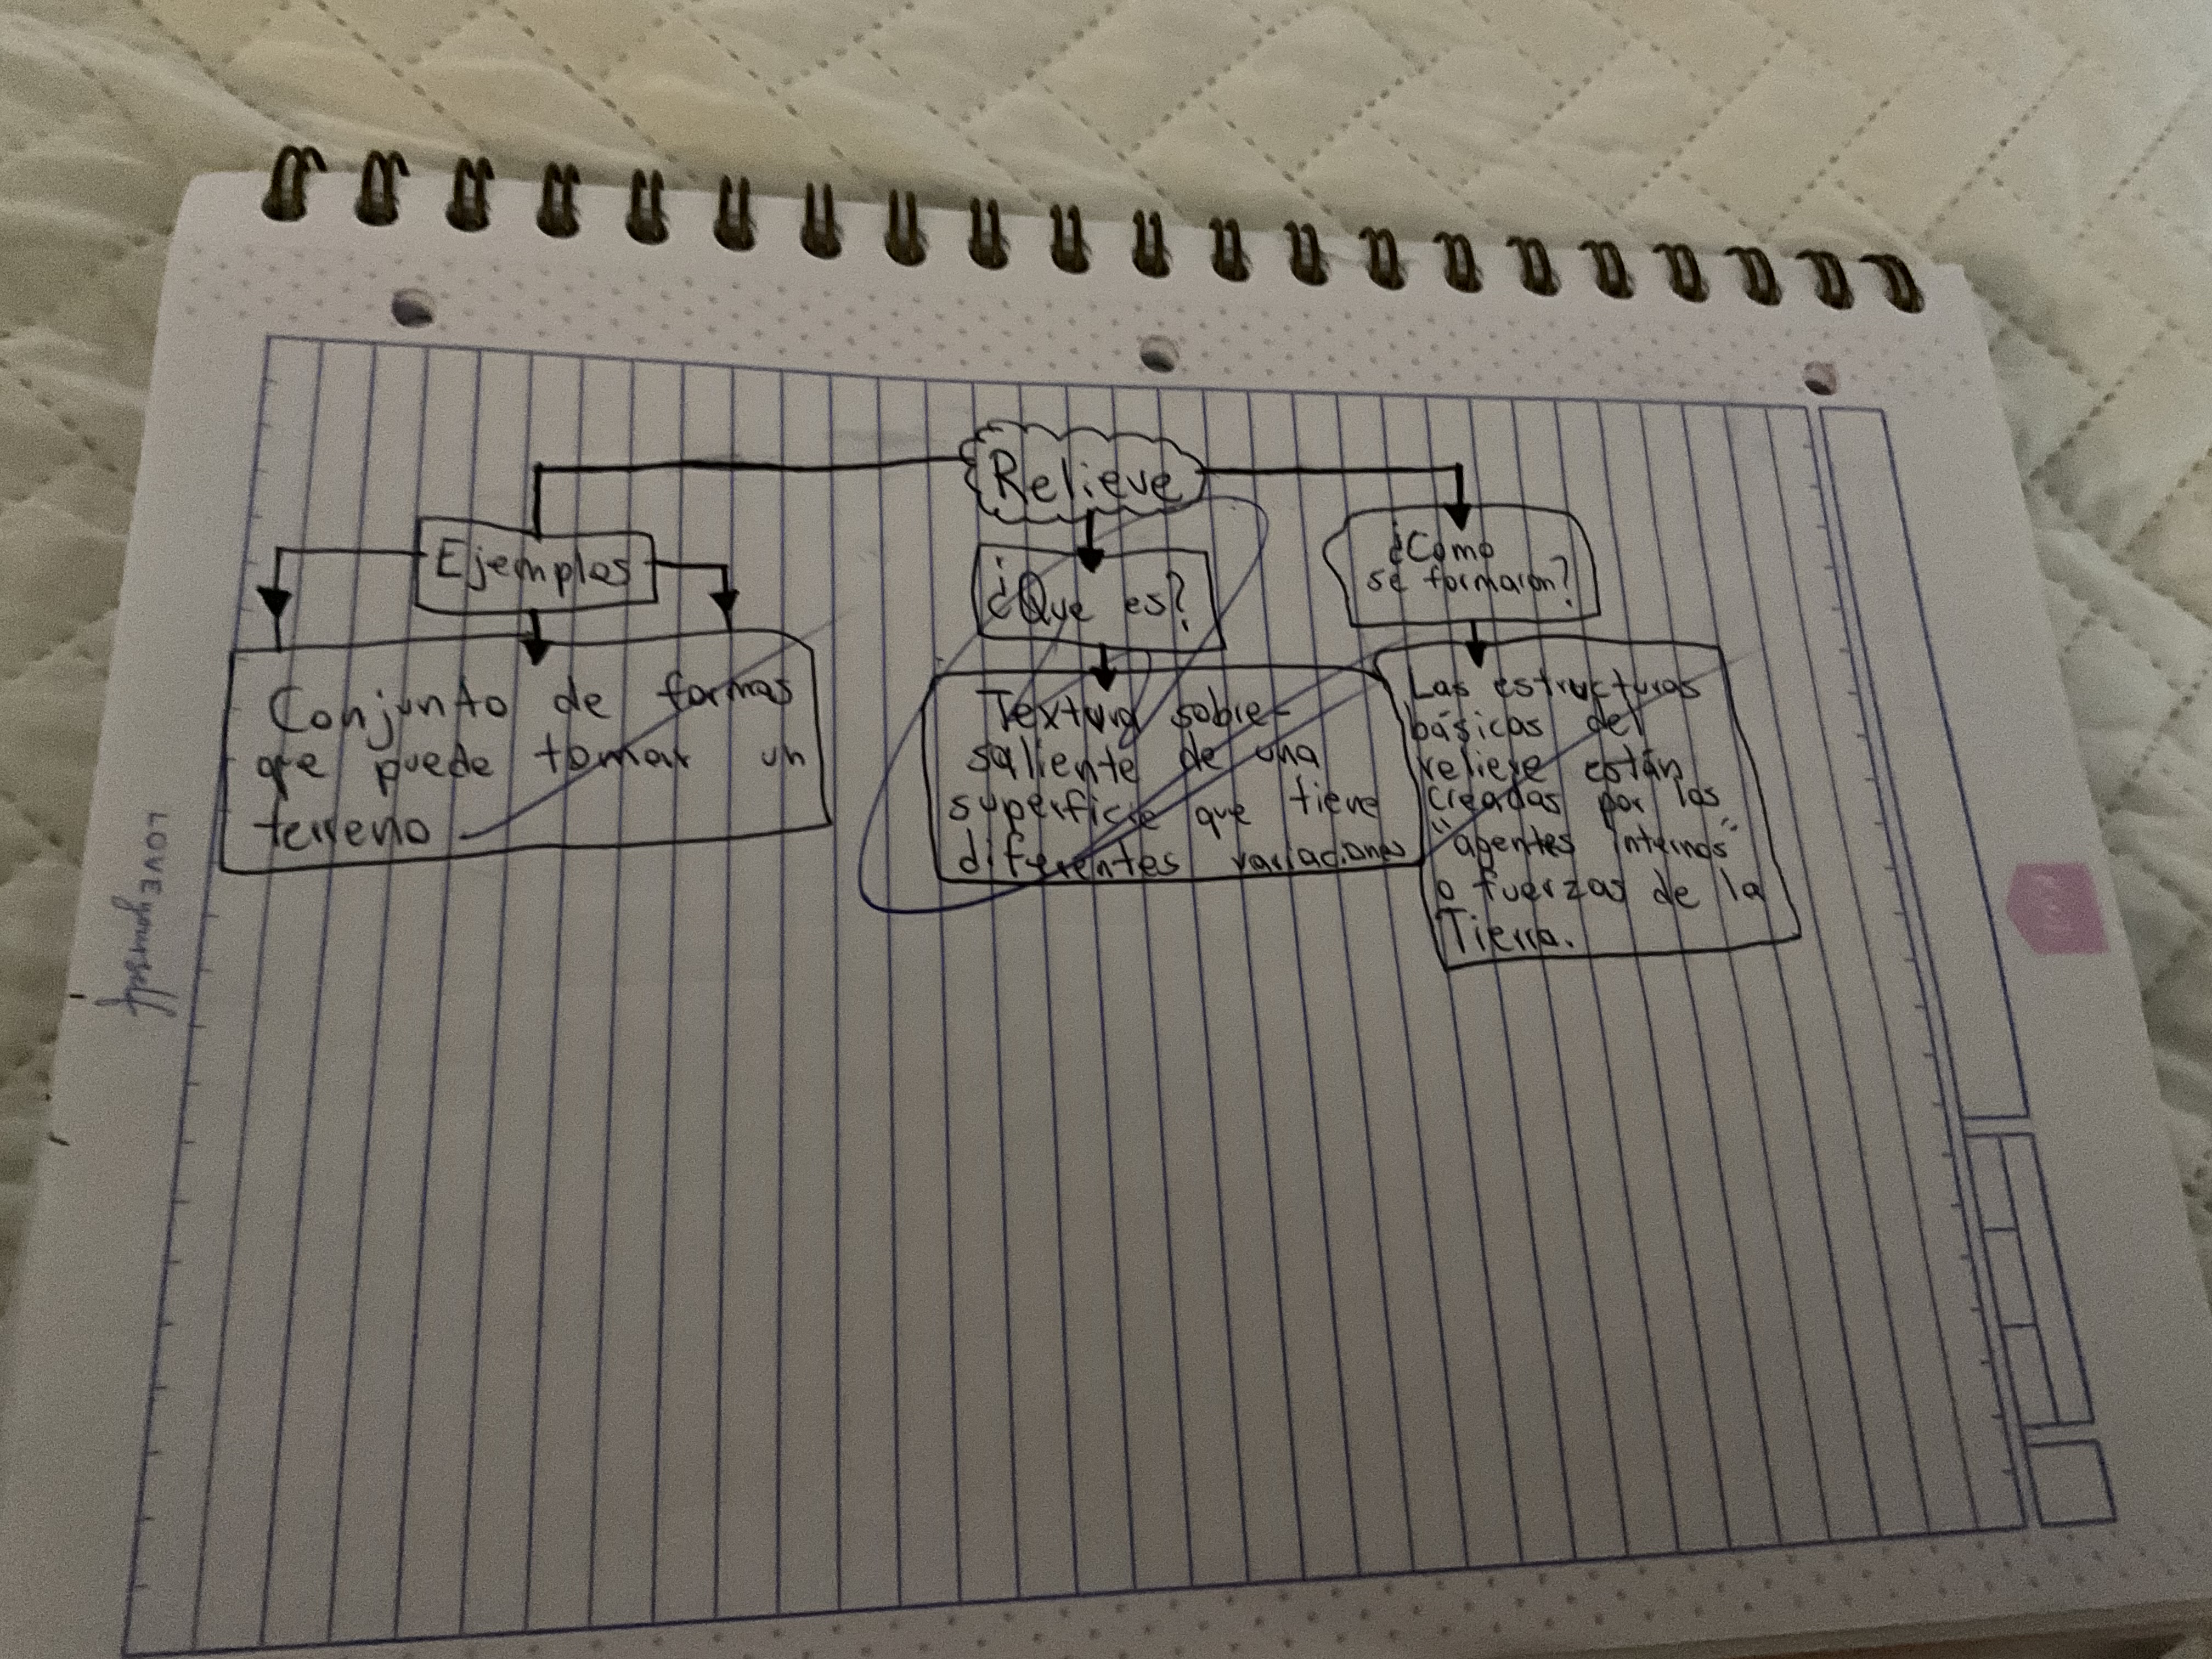 Relieve
Ejemplos
Conjunto de formas
que puede tomar un
terreno
¿Que es?
Textura sobre-
saliente de una
superficie que tiene
diferentes variaciones
¿Como
se formaron?
Las estructuras
básicas del
relieve están
creadas por los
"agentes internos"
o fuerzas de la
Tierra.
LOVE yourself